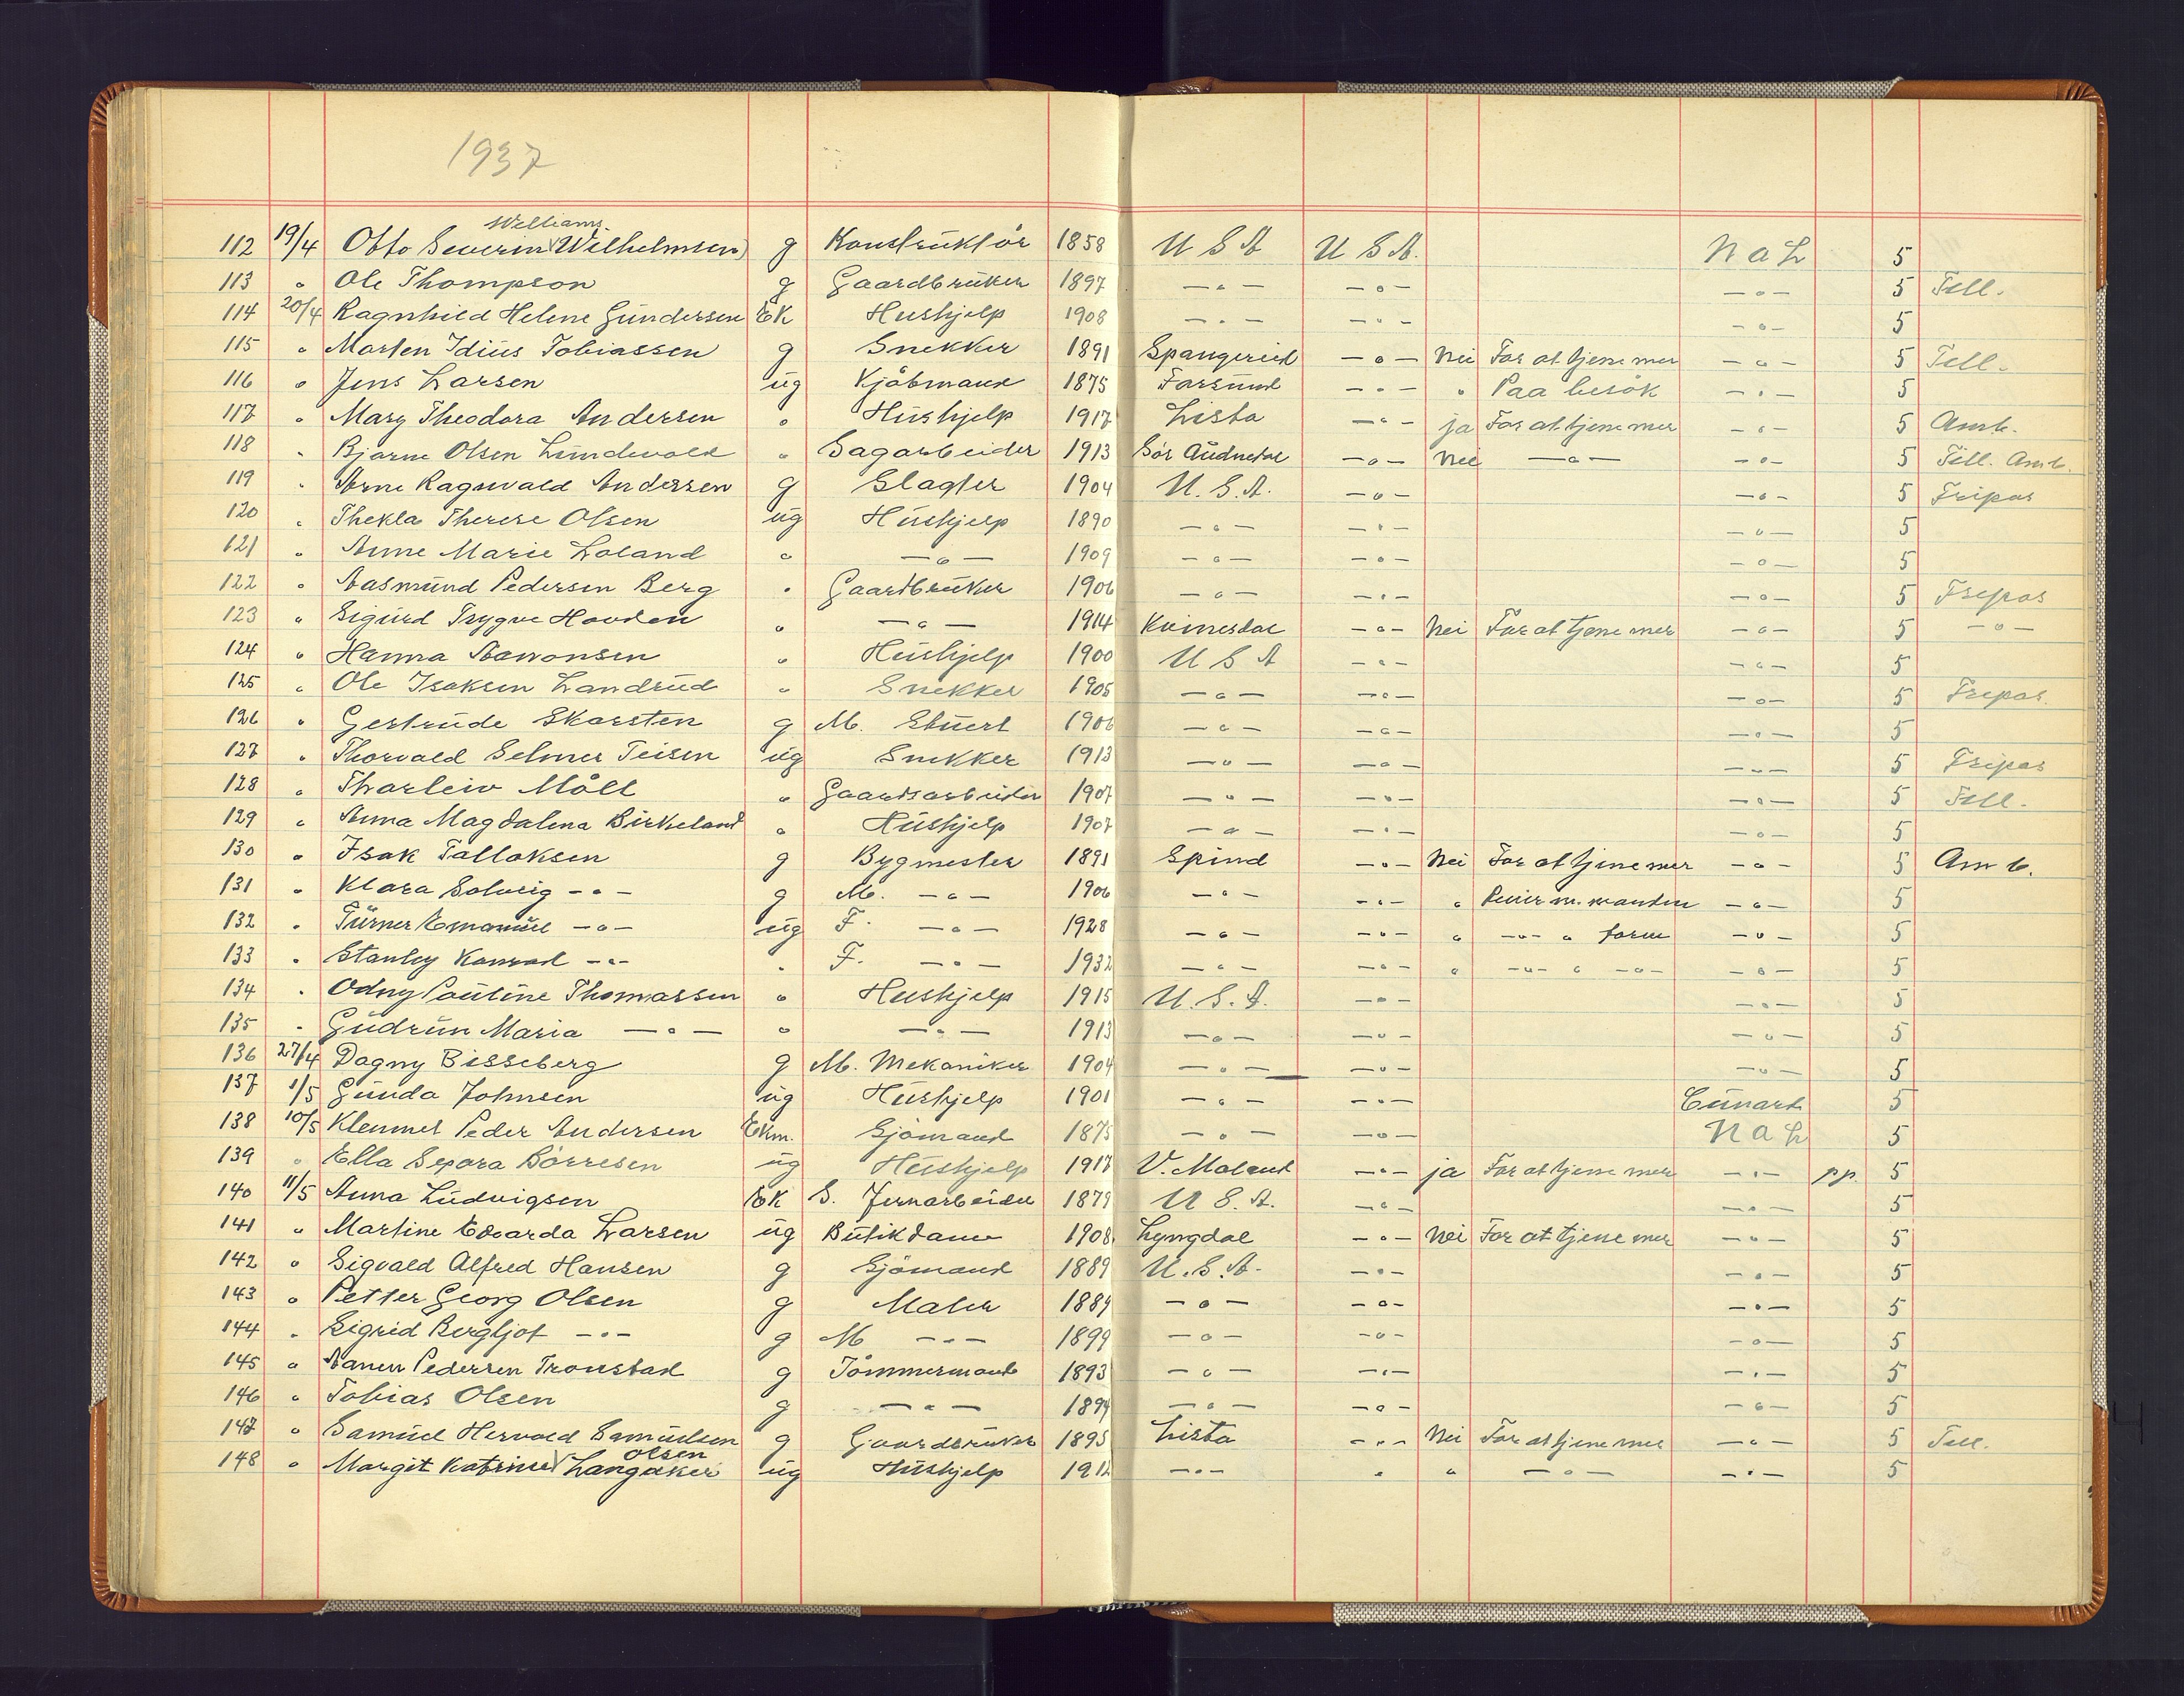 1937
Williams
112 19/4 Otto Severin (Wilhelmsen) g Konstruktør 1858 U S A U S A. N a L 5
113 " Ole Thompson g Gaardbruker 1897 —"— —"— —"— 5 Till.
114 20/4 Ragnhild Helene Gundersen Ek Hushjelp 1908 —"— —"— —"— 5
115 " Morten Idius Tobiassen g Snekker 1891 Spangereid —"— Nei For at tjene mer —"— 5 Till.
116 " Jens Larsen ug Kjøbmand 1875 Farsund —"— " Paa besøk —"— 5
117 " Mary Theodora Andersen " Hushjelp 1917 Lista —"— ja For at tjene mer —"— 5 Amb.
118 " Bjarne Olsen Lundevold " Sagarbeider 1913 Sør Audnedal —"— Nei —"— —"— 5 Till. Amb.
119 " Arne Ragnvald Andersen g Slagter 1904 U.S.A. —"— —"— 5 Fripas
120 " Thekla Therese Olsen ug Hushjelp 1890 —"— —"— —"— 5
121 " Anne Marie Loland " —"— 1909 —"— —"— —"— 5
122 " Aasmund Pedersen Berg " Gaardbruker 1906 —"— —"— —"— 5 Fripas
123 " Sigurd Trygve Hovden " —"— 1914 Kvinesdal —"— Nei For at tjene mer —"— 5 —"—
124 " Hanna Aanonsen " Hushjelp 1900 U S A —"— —"— 5
125 " Ole Isaksen Landrud " Snekker 1905 —"— —"— —"— 5 Fripas.
126 " Gertrude Skarsten g M. Stuert 1906 —"— —"— —"— 5
127 " Thorvald Selmer Teisen ug Snekker 1913 —"— —"— —"— 5 Fripas
128 " Thorleiv Møll " Gaardsarbeider 1907 —"— —"— —"— 5 Till.
129 " Anna Magdalena Birkeland " Hushjelp 1907 —"— —"— —"— 5
130 " Isak Tallaksen g Bygmester 1891 Spind —"— Nei For at tjene mer —"— 5 Amb.
131 " Klara Solveig —"— g M. —"— 1906 —"— —"— " Reiser m. manden —"— 5
132 " Turner Emanuel —"— ug F. —"— 1928 —"— —"— " —"— " forn —"— 5
133 " Stanley Konrad —"— " F. —"— 1932 —"— —"— " —"— " —"— —"— 5
134 " Odny Pauline Thomassen " Hushjelp 1915 U.S.A. —"— —"— 5
135 " Gudrun Maria —"— " —"— 1913 —"— —"— —"— 5
136 27/4 Dagny Bisseberg g M. Mekaniker 1904 —"— —"— —"— 5
137 1/5 Gunda Johnsen ug Hushjelp 1901 —"— —"— Cunard 5
138 10/5 Klemmet Peder Andersen Ekm. Sjømand 1875 —"— —"— N a L 5
139 " Ella Sepora Børresen ug Hushjelp 1917 V. Moland —"— ja For at tjene mer —"— pp. 5
140 11/5 Anna Ludvigsen Ek S. Jernarbeider 1879 U S. A. —"— —"— 5
141 " Martine Edvarda Larsen ug Butikdame 1908 Lyngdal —"— Nei For at tjene mer —"— 5
142 " Sigvald Alfred Hansen g Sjømand 1889 U.S.A. —"— —"— 5
143 " Petter Georg Olsen g Maler 1889 —"— —"— —"— 5
144 " Sigrid Bergljot —"— g M —"— 1899 —"— —"— —"— 5
145 " Aanen Pedersen Tronstad g Tømmermand 1893 —"— —"— —"— 5
146 " Tobias Olsen g —"— 1894 —"— —"— —"— 5
147 " Samuel Hervald Samuelsen g Gaardbruker 1895 Lista —"— Nei For at tjene mer —"— 5 Till.
Olsen
148 " Margit Katrine Langåker ug Hushjelp 1912 —"— " " —"— —"— 5